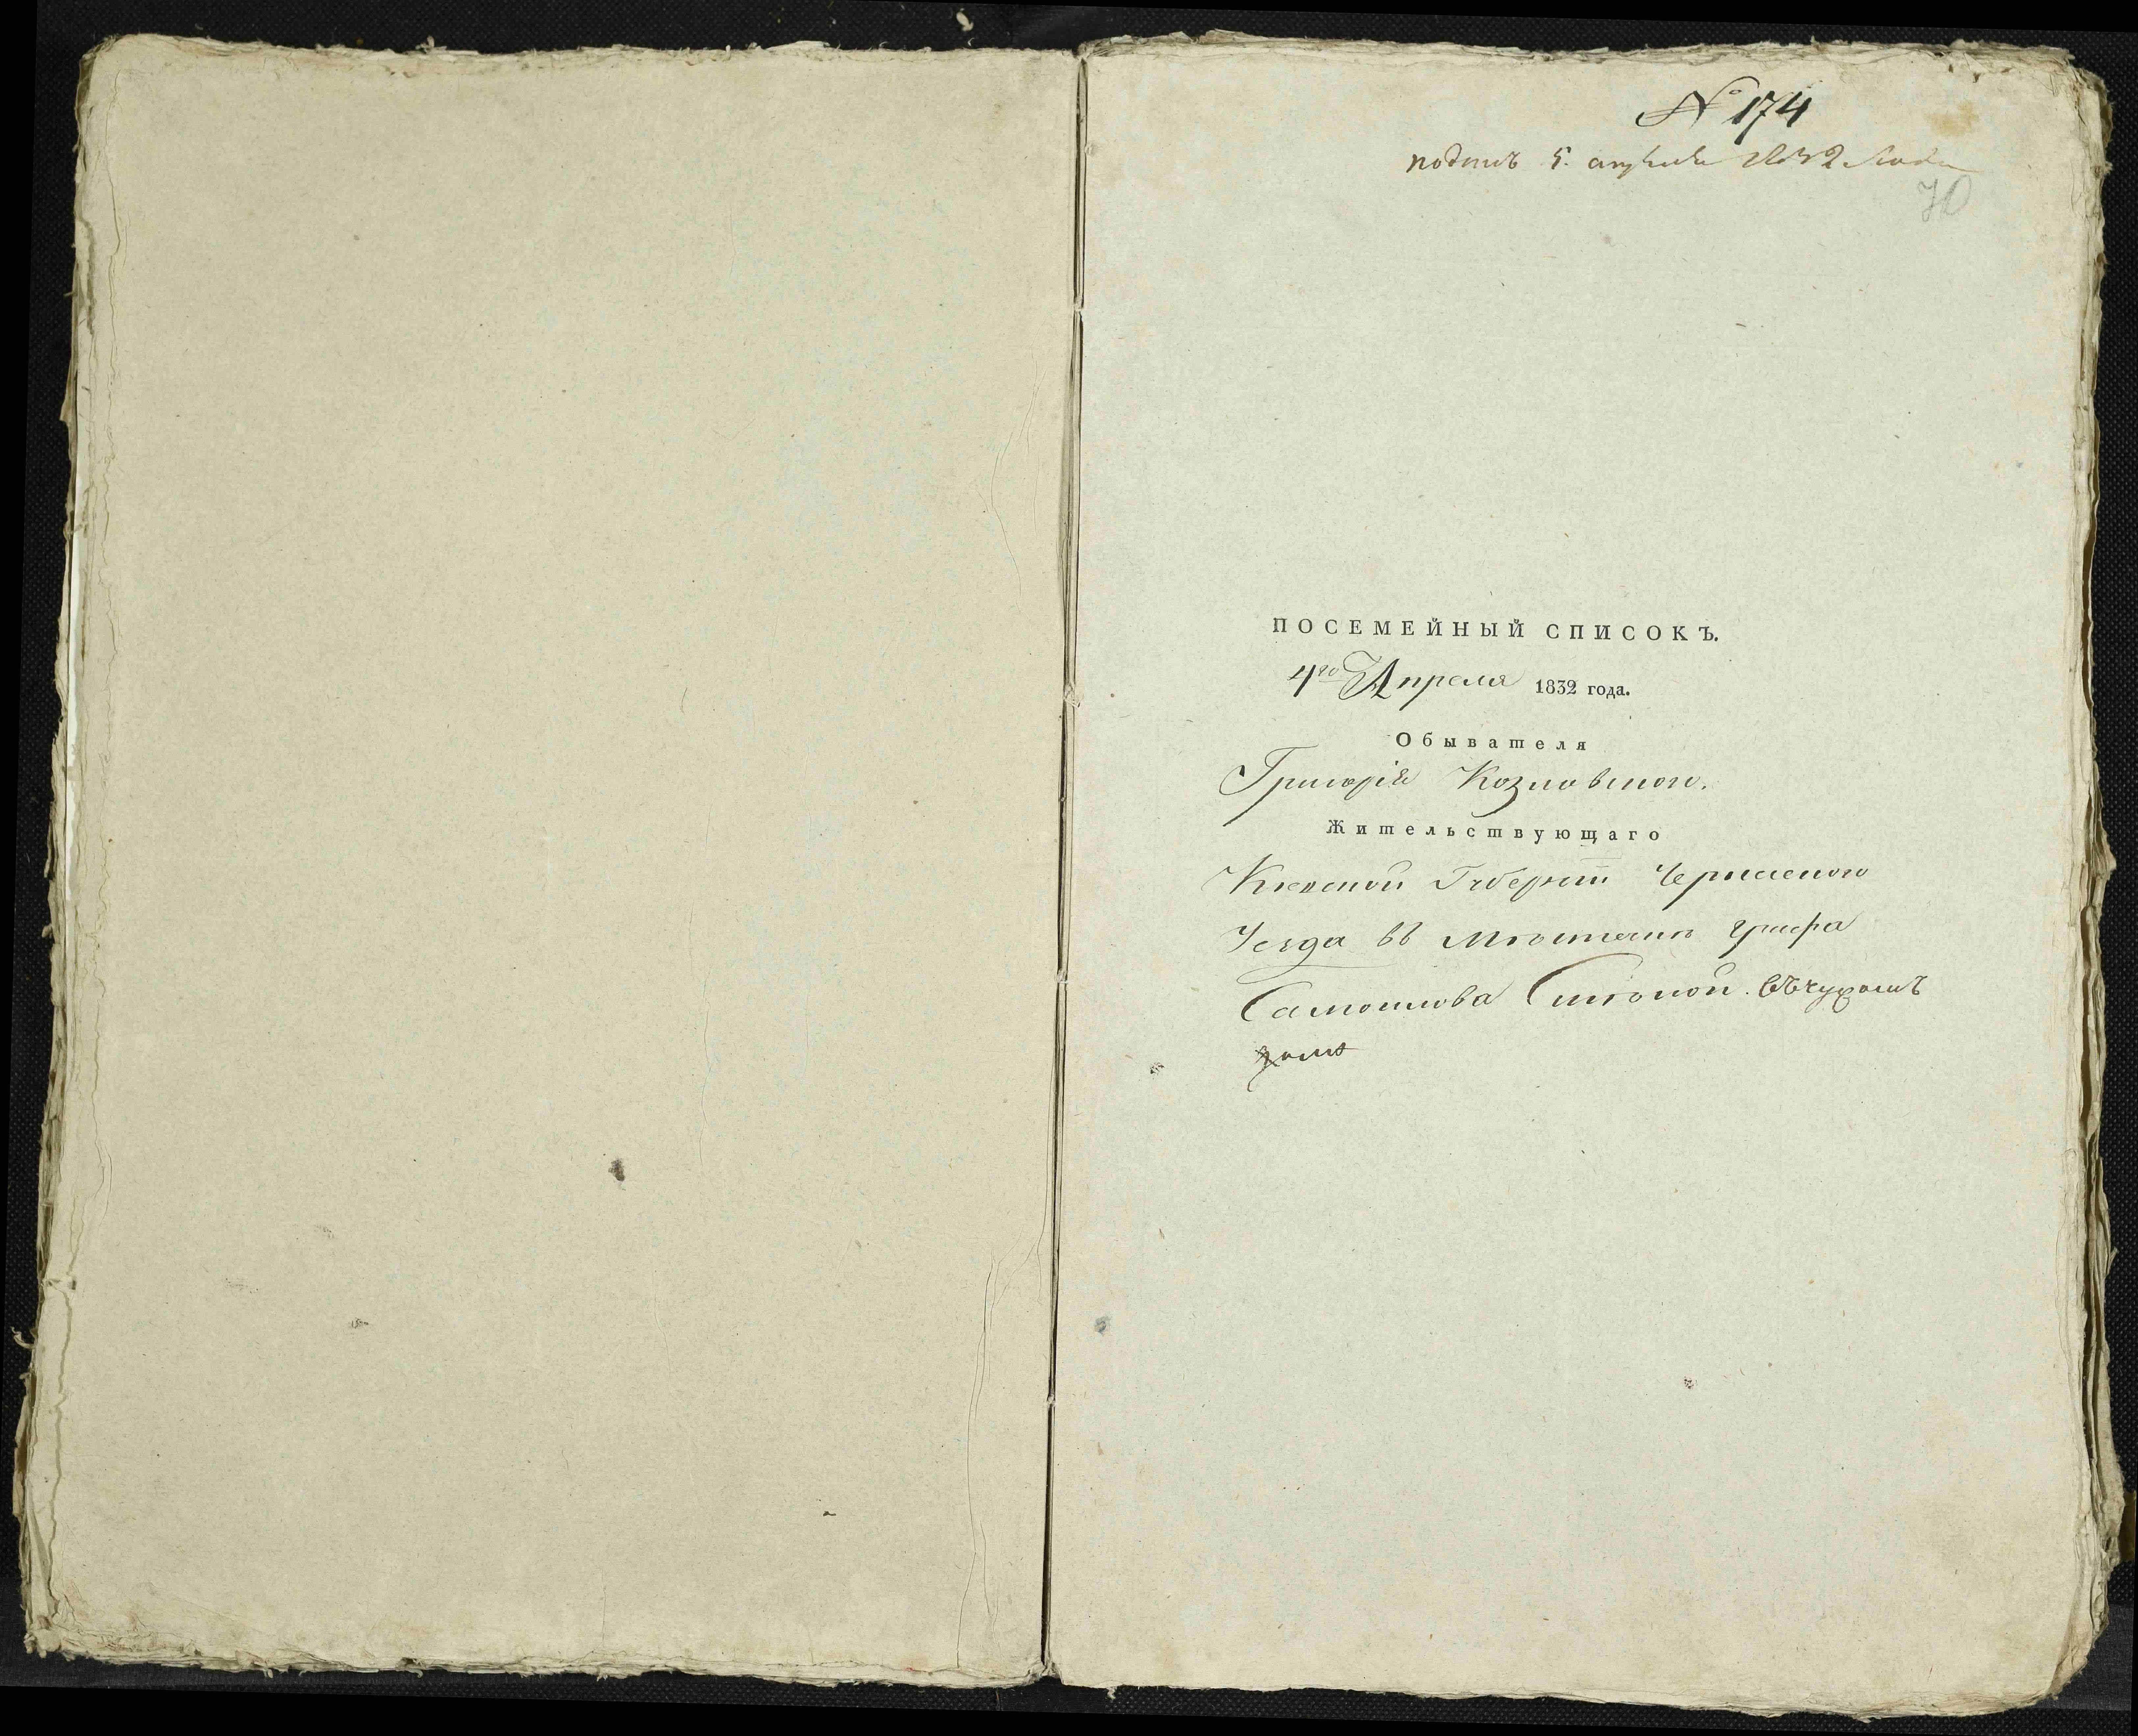 № 174
подпись 5. апреля 1832 года
70
ПОСЕМЕЙНЫЙ СПИСОКЪ.
4го Апреля 1832 года.
Обывателя
Григорія Козловского.
Жительствующаго
Киевской Губерніи Черкаского
Уезда въ Мѣстечкѣ Графа
Самойлова Смелой. въ чужомъ
доме